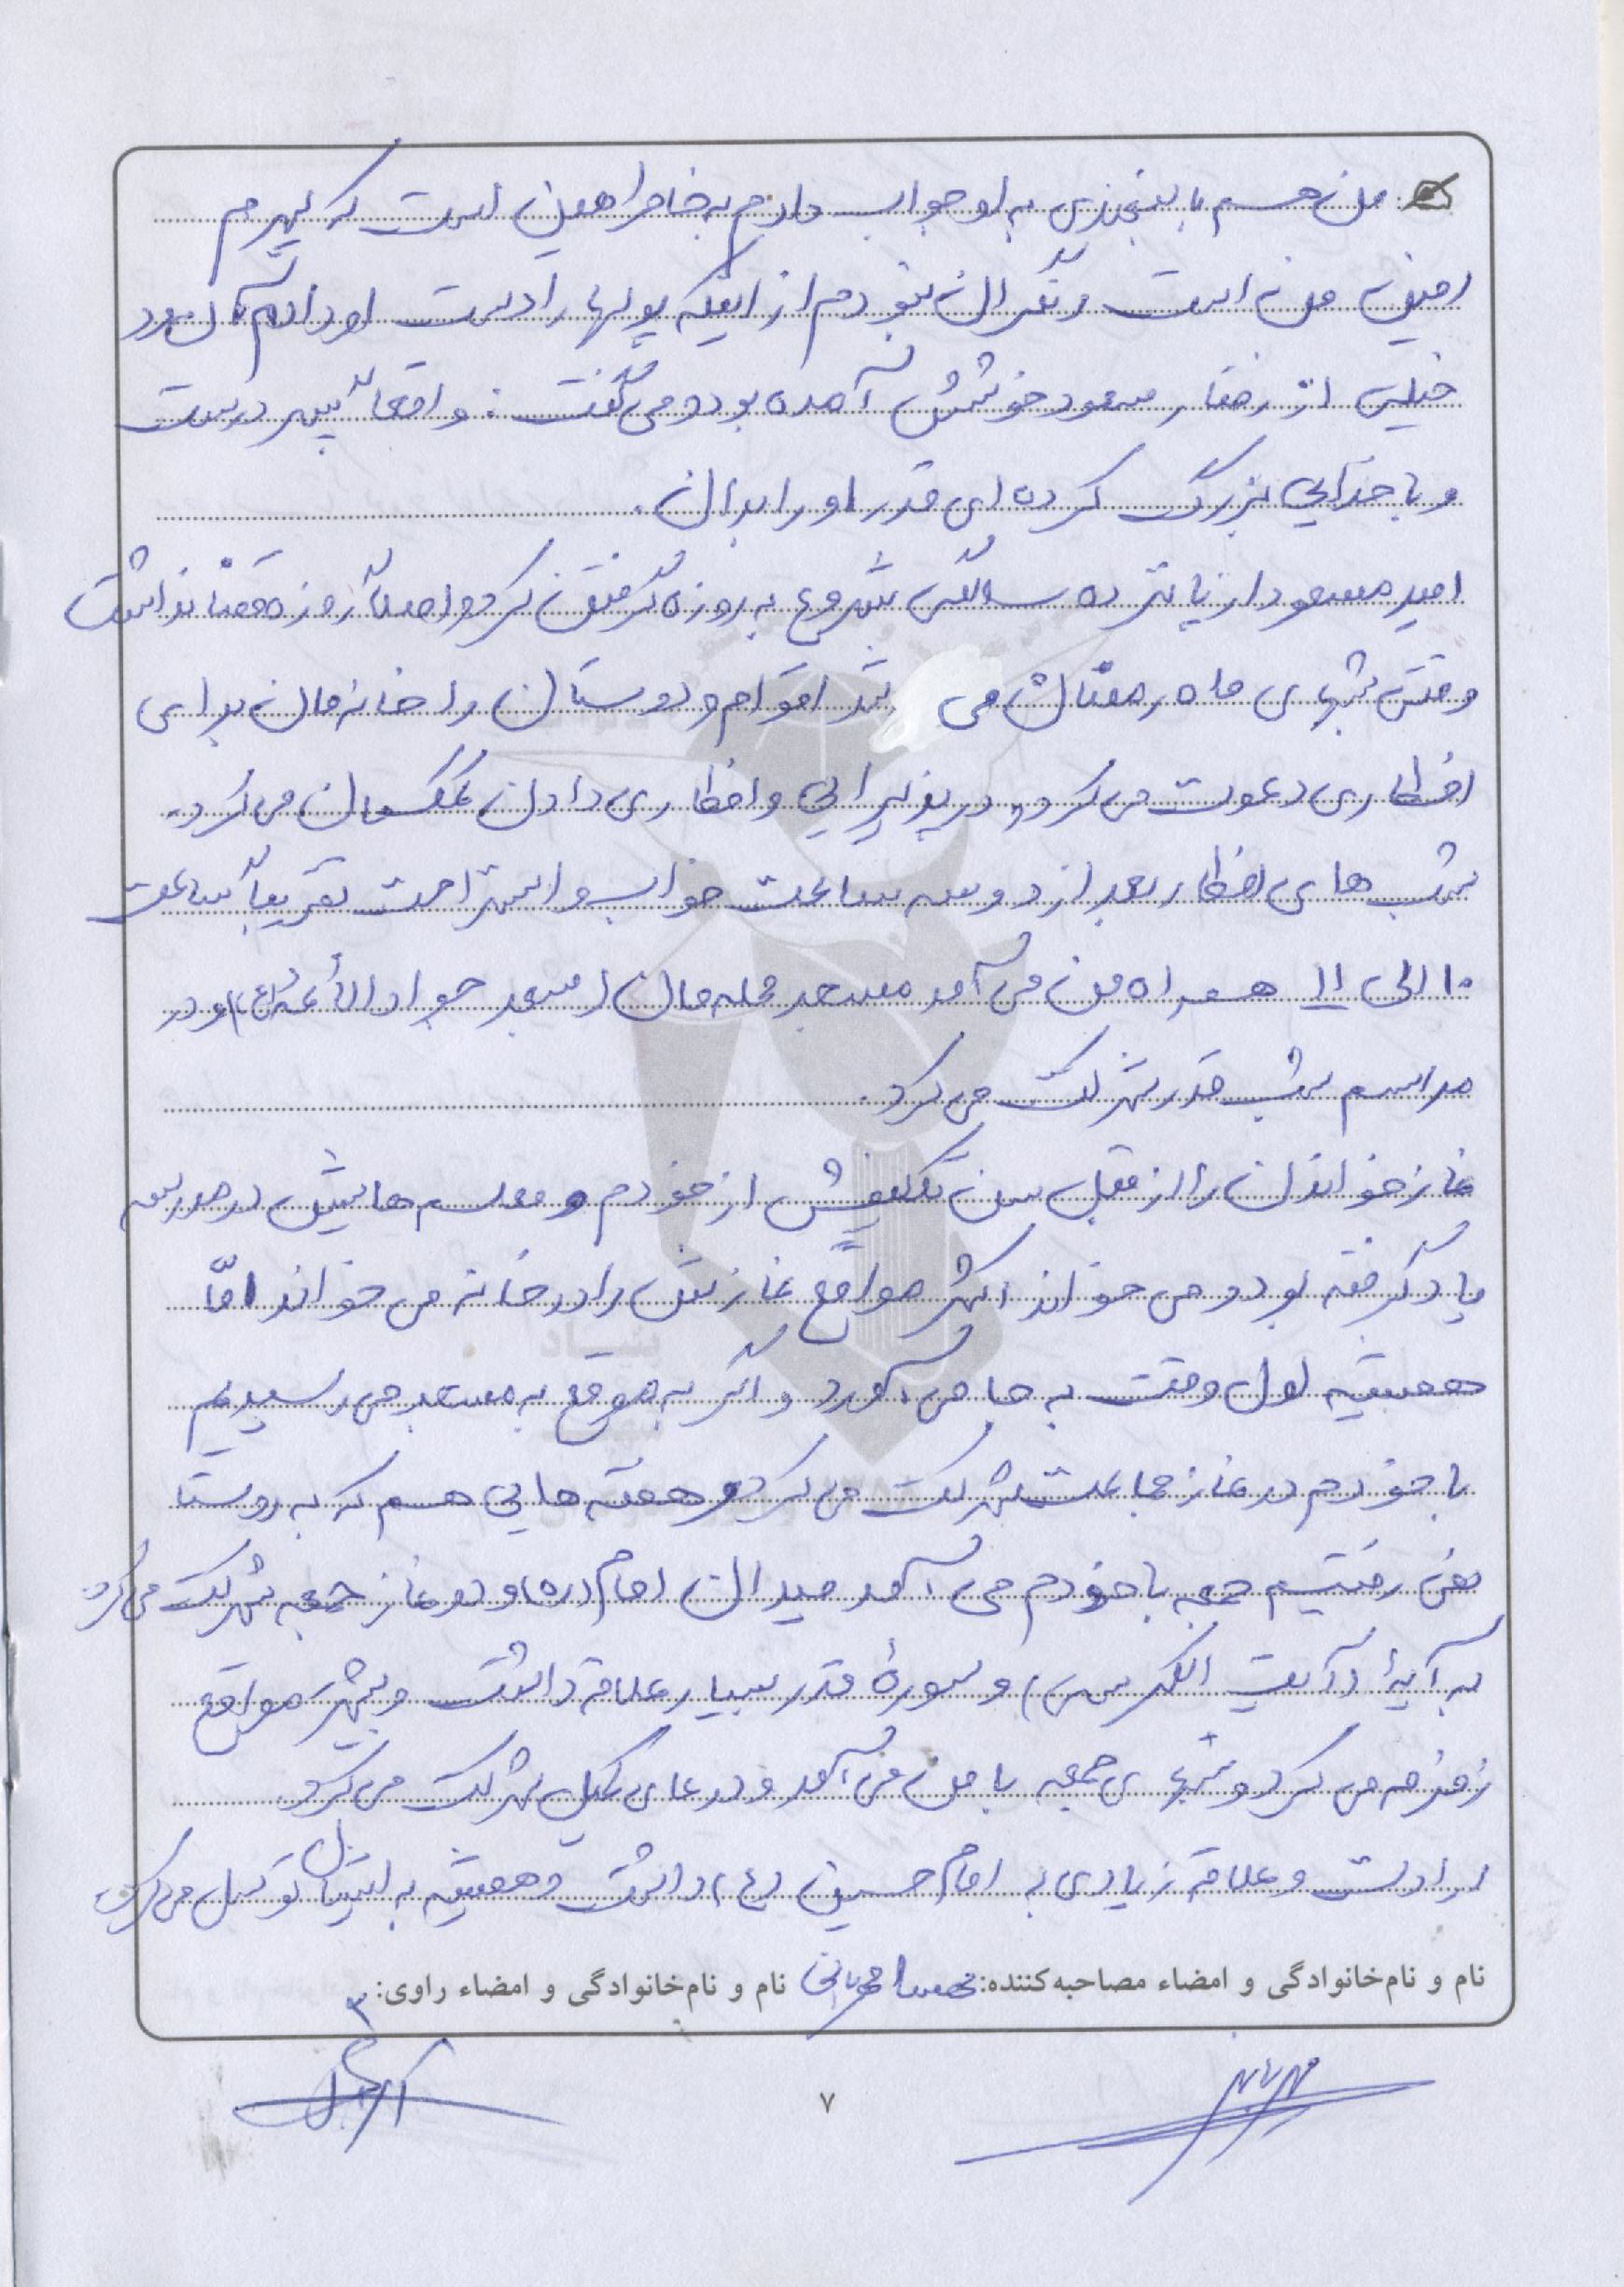 من هم با لبخندی به او جواب دادم به خاطر همین است که پسرم
امین من است و نگران نبودم از اینکه پولها را دست او دادم آن مرد
خیلی از رفتار مسعود خوشش آمده بود و می گفت: واقعاً پسر درست
و با خدایی بزرگ کرده ای قدر او را بدان.
امیر مسعود از پانزده سالگی شروع به روزه گرفتن کرد و اصلاً روزه قضا نداشت
وقتی شبهای ماه رمضان می شد اقوام و دوستان را خانه مان برای
افطاری دعوت می کرد و در پذیرایی و افطاری دادن کمکمان می کرد.
شب های افطار بعد از دو سه ساعت خواب و استراحت تقریباً ساعت
۱۰ الی ۱۱ همراه من می آمد مسجد محله مان (مسجد جواد الأئمه (ع)) و در
مراسم شب قدر شرکت می کرد.
نماز خواندن را از قبل سن تکلیفش از خودم و معلم هایش در مدرسه
یاد گرفته بود و می خواند اکثر مواقع نمازش را در خانه می خواند امّا
همیشه اول وقت به جا می آورد و اگر به موقع به مسجد می رسیدیم
با خودم در نماز جماعت شرکت می کرد و هفته هایی هم که به روستا
نمی رفتیم جمعه با خودم می آمد میدان امام (ره) و در نماز جمعه شرکت می کرد.
به آیهٔ (آیت الکرسی) و سورهٔ قدر بسیار علاقه داشت و بیشتر مواقع
زمزمه می کرد و شبهای جمعه با من می آمد و در دعای کمیل شرکت می کرد.
ارادت و علاقه زیادی به امام حسین (ع) داشت و همیشه به ایشان توسل می کرد.
نام و نام‌خانوادگی و امضاء مصاحبه‌کننده: مهربانی نام و نام‌خانوادگی و امضاء راوی:
۷